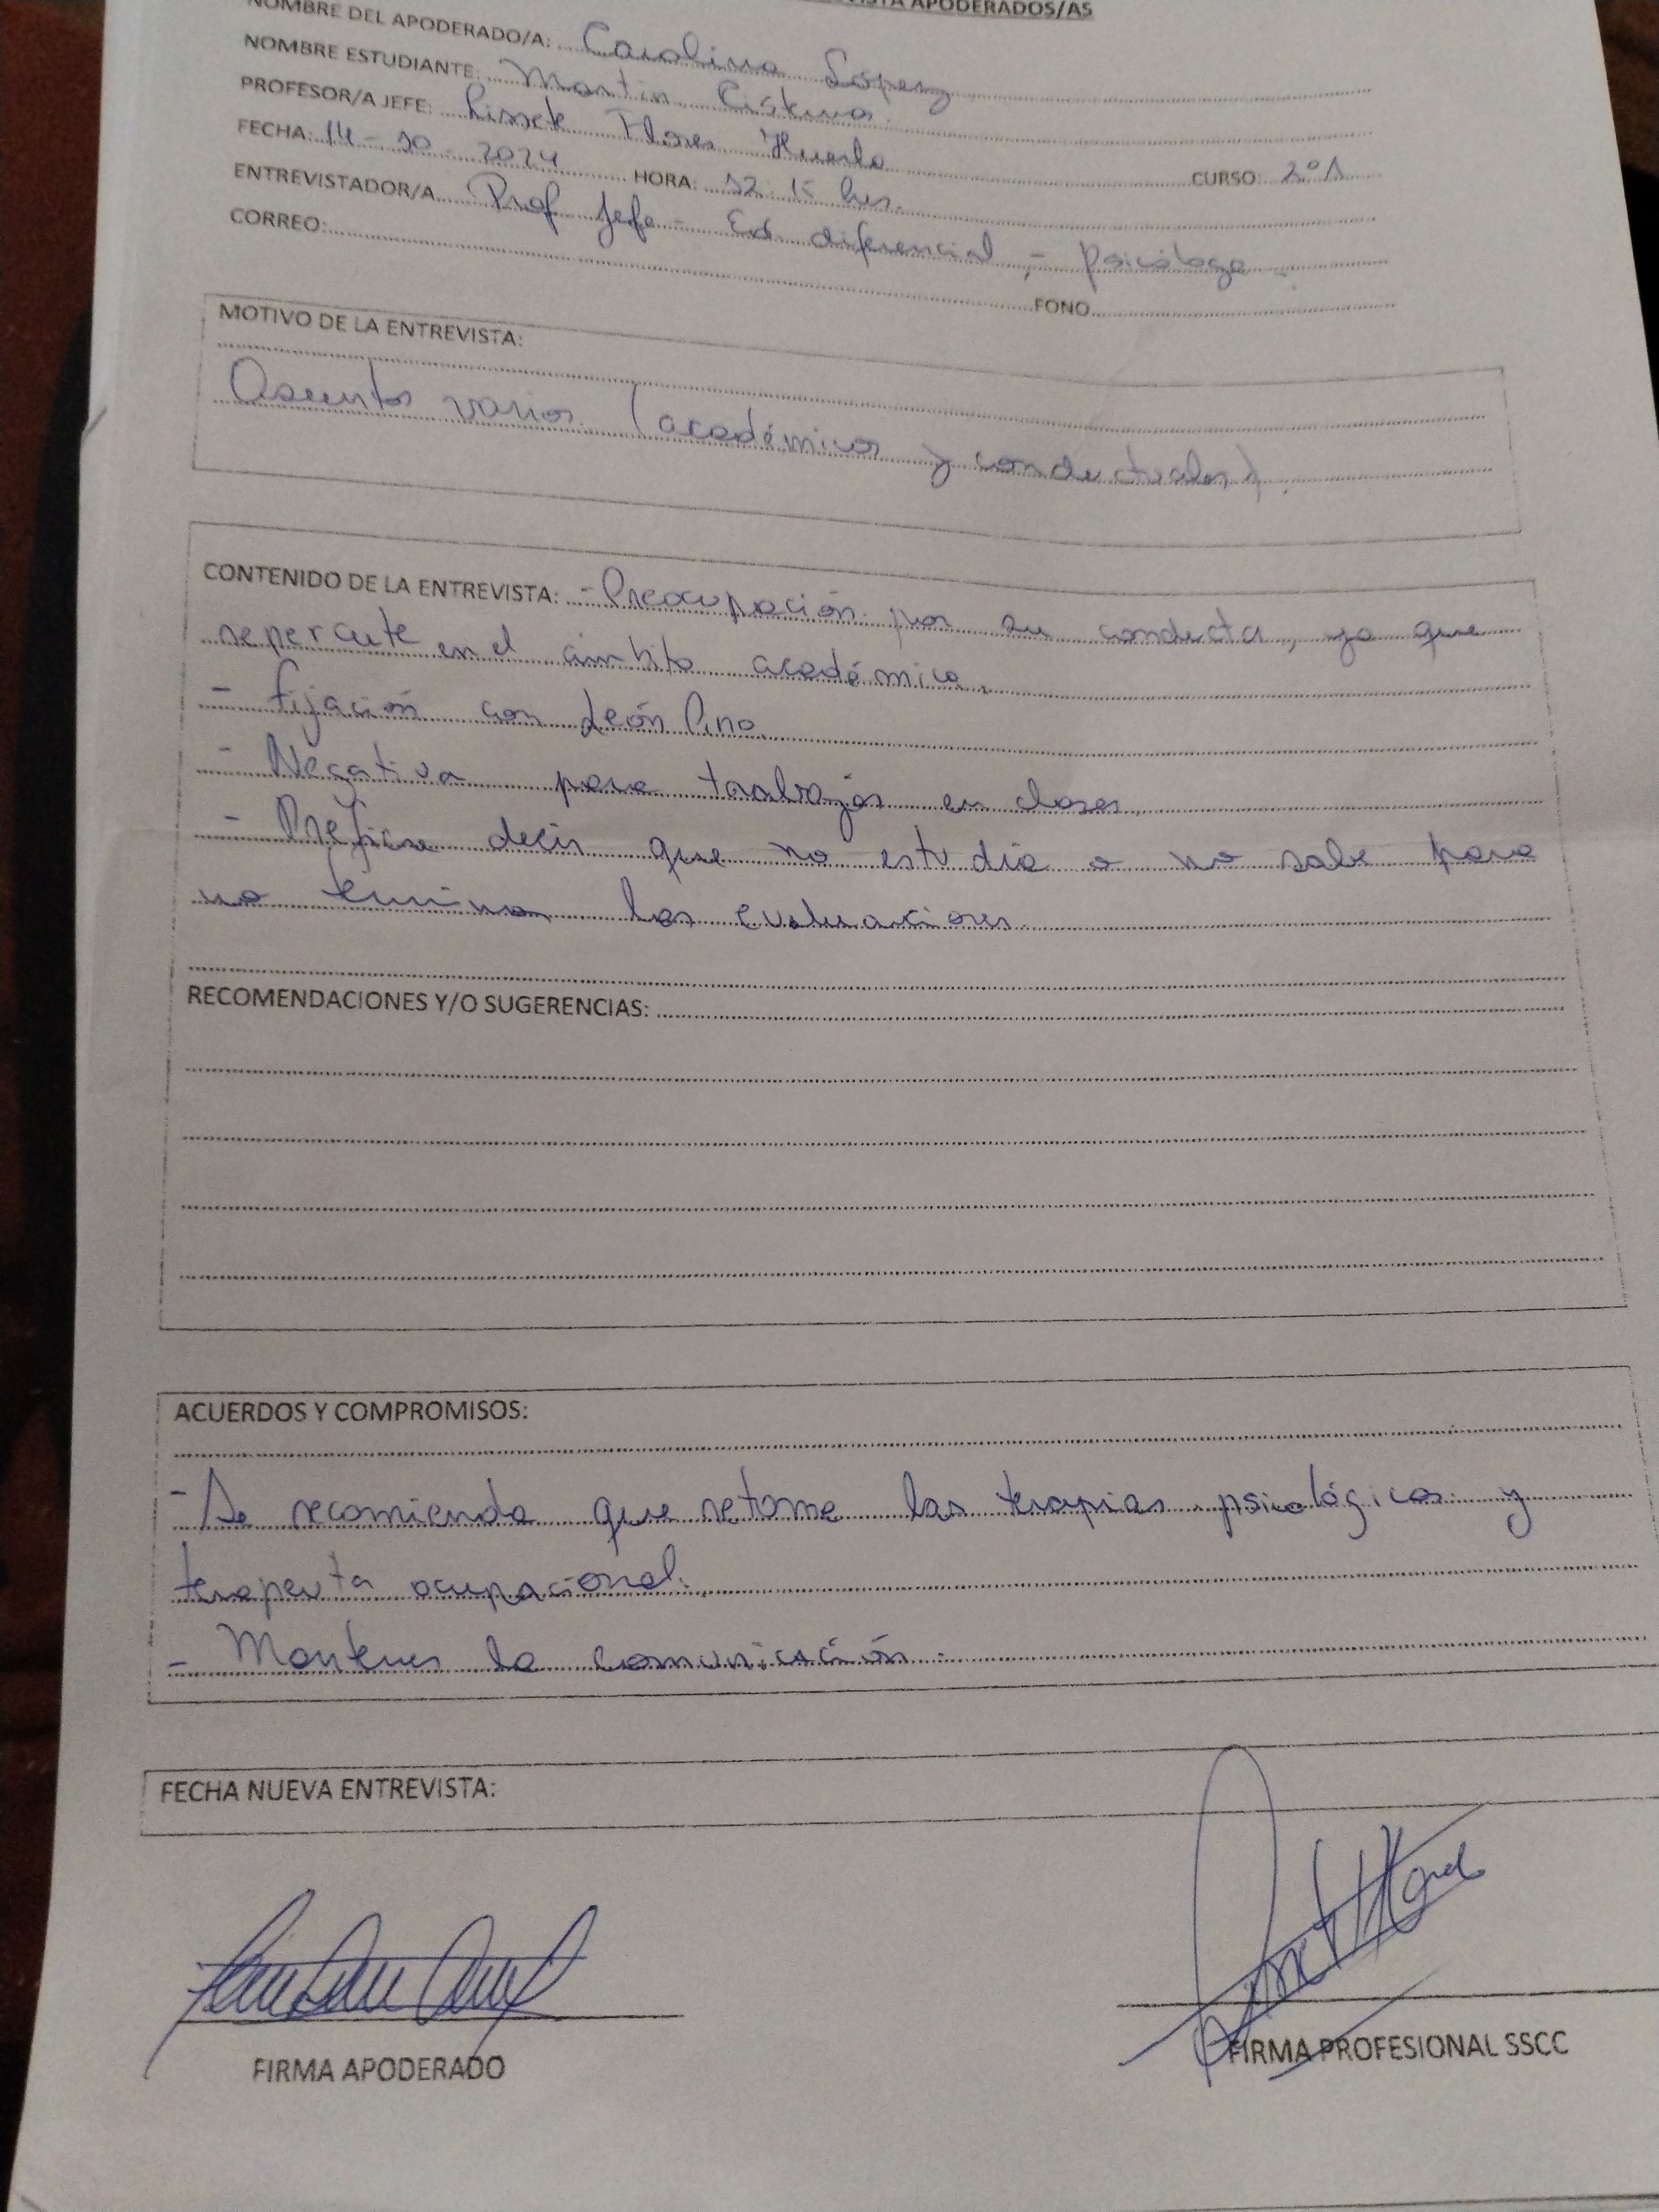 VISTA APODERADOS/AS
NOMBRE DEL APODERADO/A: Carolina López
NOMBRE ESTUDIANTE: Martín Cisterna
PROFESOR/A JEFE: Lissete Flores Huerta CURSO: 2°A
FECHA: 14-10-2024 HORA: 12:15 hrs.
ENTREVISTADOR/A Prof Jefe - Ed diferencial, - psicóloga -
CORREO: FONO
MOTIVO DE LA ENTREVISTA:
Asuntos varios (académicos y conductuales).
CONTENIDO DE LA ENTREVISTA: - Preocupación por su conducta, ya que
repercute en el ámbito académico.
- fijación con León Pino.
- Negativa para trabajos en clases.
- Prefiere decir que no estudia o no sabe para
no terminar las evaluaciones.
RECOMENDACIONES Y/O SUGERENCIAS:
ACUERDOS Y COMPROMISOS:
- Se recomienda que retome las terapias psicológicas y
terapeuta ocupacional.
- Mantener la comunicación.
FECHA NUEVA ENTREVISTA:
FIRMA APODERADO
FIRMA PROFESIONAL SSCC